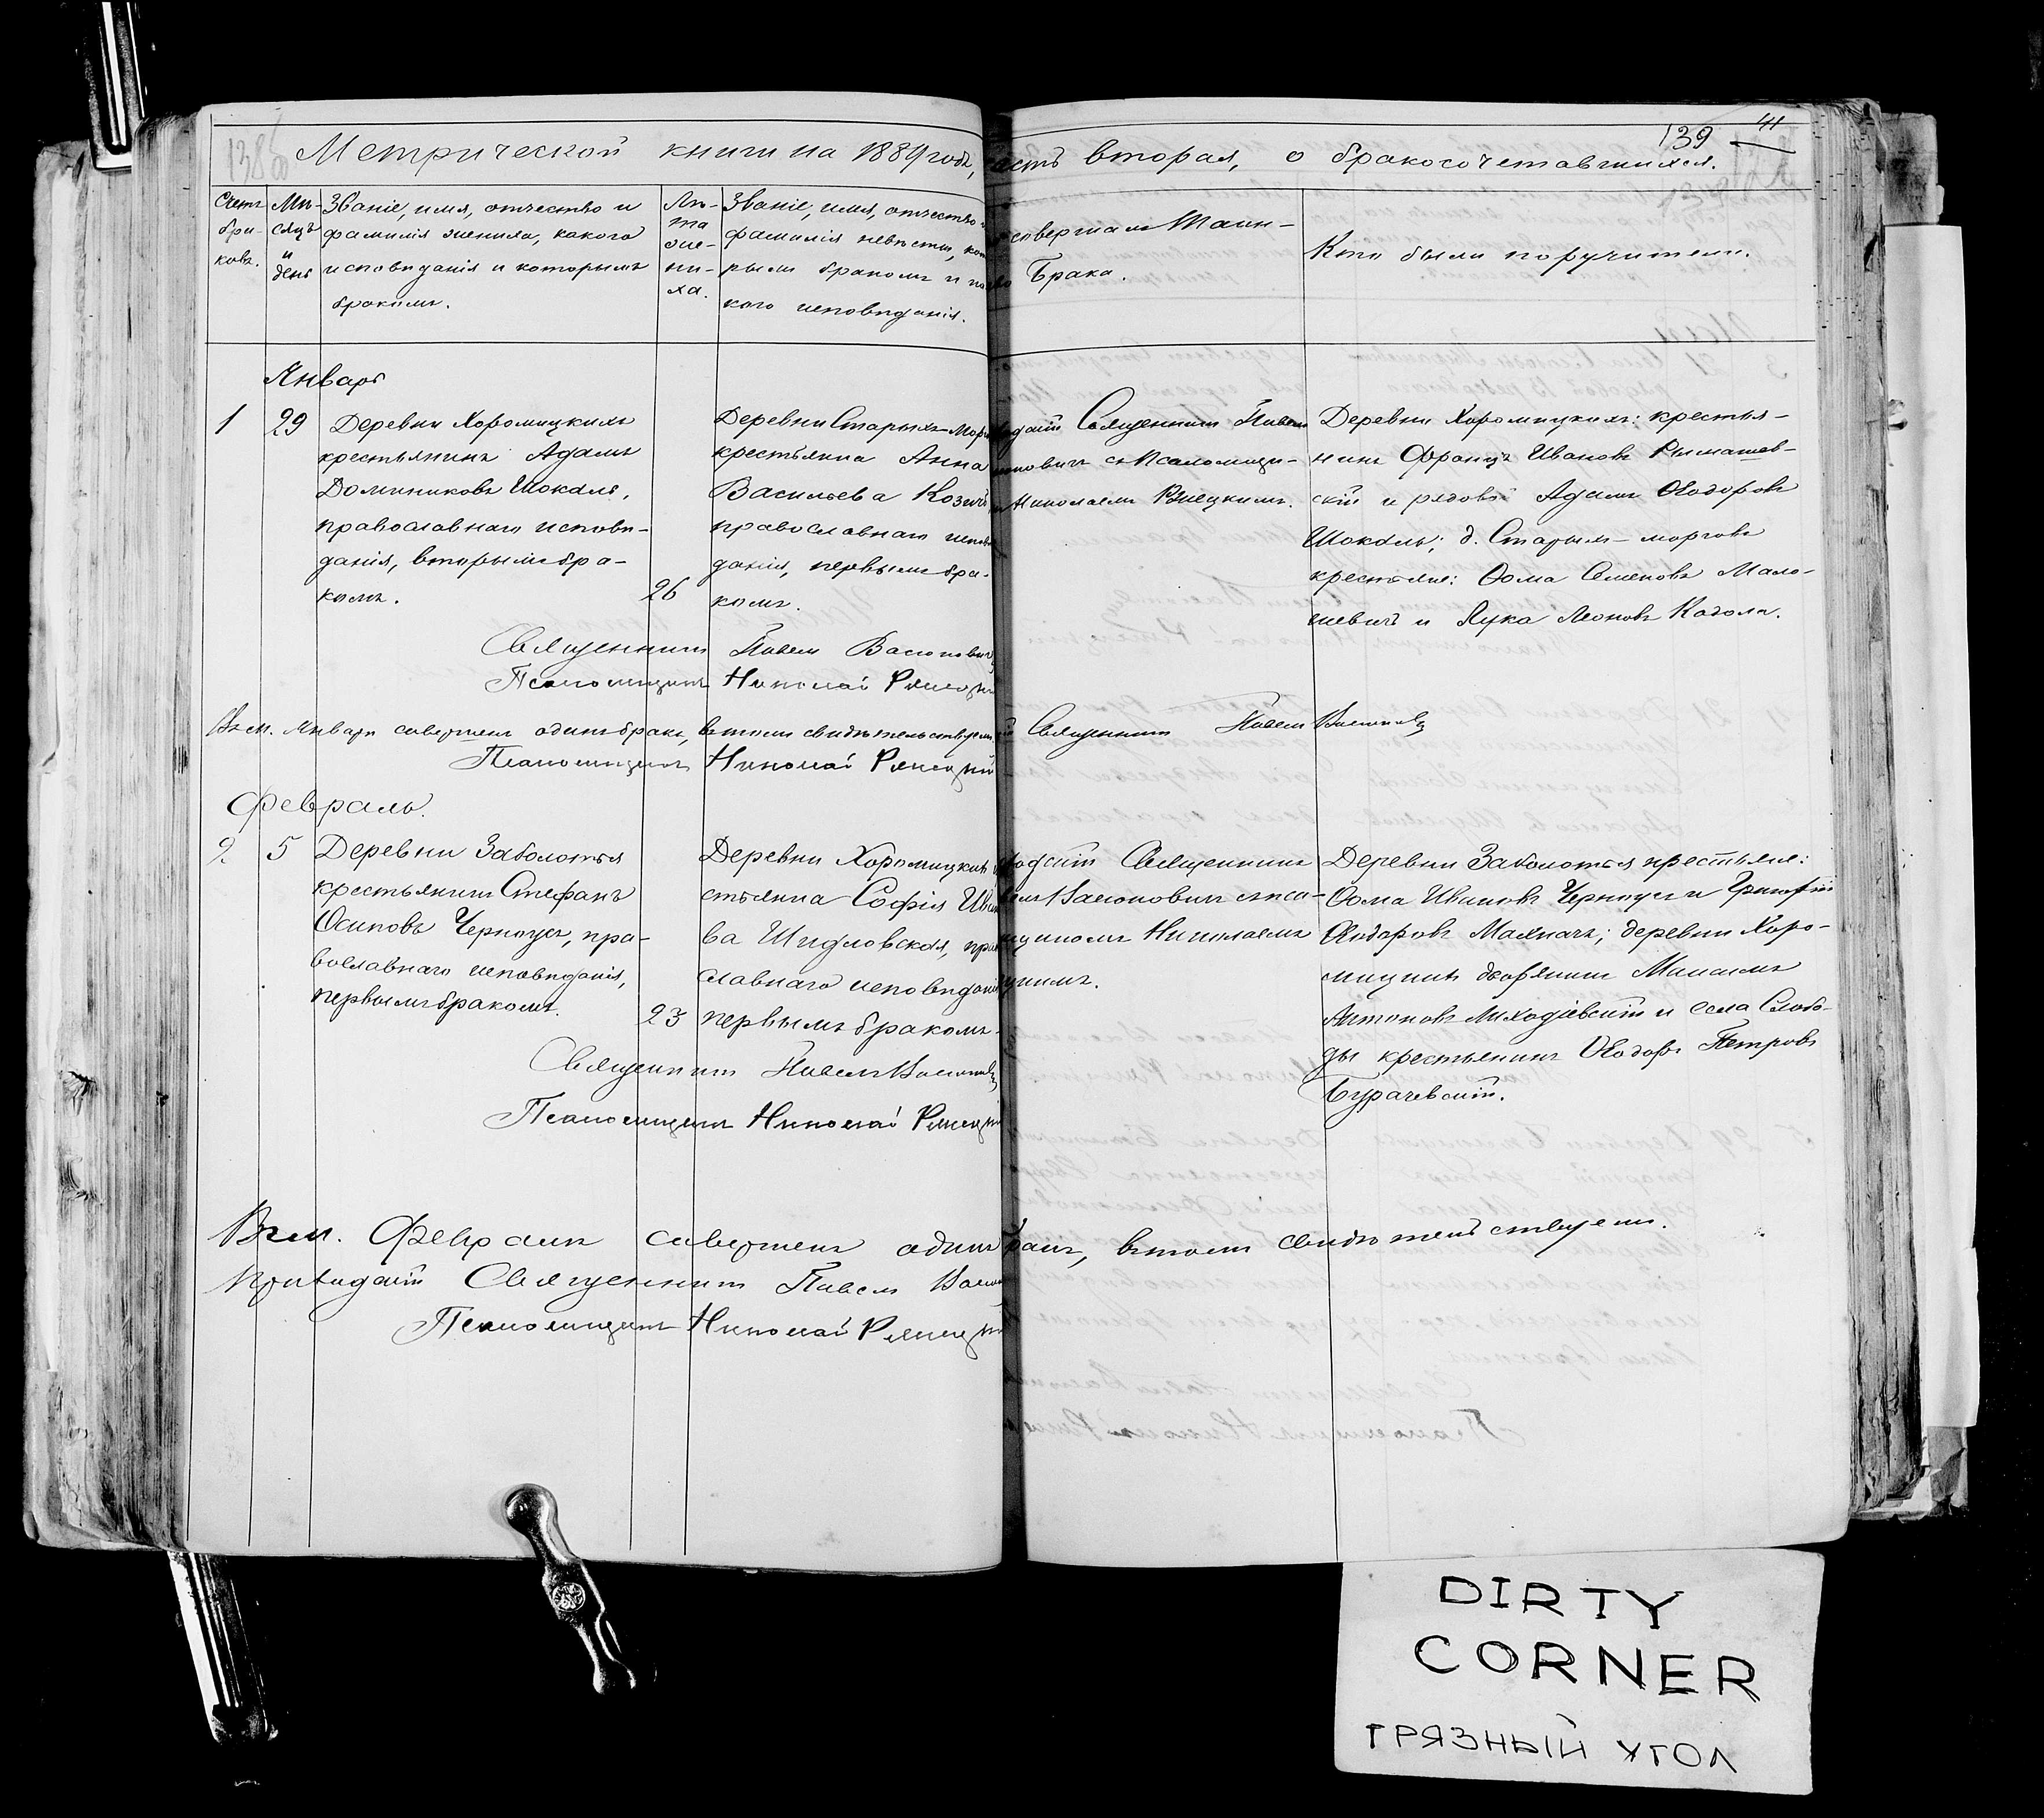 139 41
Метрической книги на 1889 годъ, асть вторая, о бракосочетавшихся.
Счетъ бра-ковъ.
Мѣ-сяцъ и день
Званіе, имя, отчество и
фамилія жениха, какого
исповѣданія и которымъ
бракомъ.
Лѣ-та же-ни-ха.
Званіе, имя, отчество
фамилія невѣсты, кот
рымъ бракомъ и
кого исповѣданія.
совершалъ Таин-
Брака.
Кто были поручители.
Январь
1 29
Деревни Хоромицкихъ
крестьянинъ Адамъ
Доминиковъ Шокаль,
православнаго исповѣ-
данія, вторымъ бра-
комъ.
26
Деревни Старыхъ-Морг
крестьянка Анна
Васильева Козич
православнаго испов
данія, первымъ бра-
комъ.
Священникъ Павелъ
новичъ съ Псаломщи-
Николаемъ
Деревни Хоромицкихъ: крестья-
нинъ Францъ Ивановъ Рымашев-
скій и рядовой Адамъ Ѳеодоровъ
Шокаль; д. Старыхъ-морговъ
крестьяне: Ѳома Семеновъ Мало-
шевичъ и Лука Леоновъ Кадола.
Священникъ Павелъ
Псаломщикъ Николай
Въ м. Январѣ совершенъ одинъ бракъ, въ томъ свидѣтельствуемъ
Священникъ Павелъ
Псаломщикъ Николай
Февраль.
2. 5
Деревни Заболотья
крестьянинъ Стефанъ
Осиповъ Черноусъ, пра-
вославнаго исповѣданія,
первымъ бракомъ.
23
Деревни Хоромицкихъ
стьянка Софія Иван
ва Шидловская, прав
славнаго исповѣданія
первымъ бракомъ.
Священникъ
съ пса-
щикомъ Николаемъ
цкимъ.
Деревни Заболотья крестьяне:
Ѳома Ивановъ Черноусъ и Григорій
Ѳеодоровъ Махначъ; деревни Хоро-
мицкихъ дворянинъ Максимъ
Антоновъ и села Слобо-
ды крестьянинъ Ѳеодоръ Петровъ
Бурачевскій.
Священникъ Павелъ
Псаломщикъ Николай
Въ м. Февралѣ совершенъ одинъ бракъ, въ томъ свидѣтельствуемъ.
Приходскій Священникъ Павелъ
Псаломщикъ Николай
DIRTY
CORNER
ГРЯЗНЫЙ УГОЛ